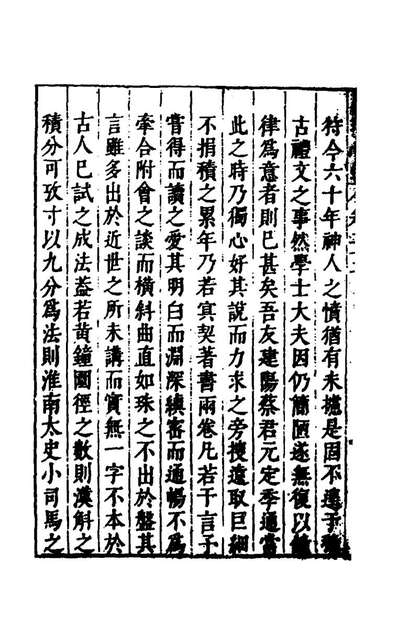 符今六十年神人之憤猶有未攄是固不遑于稽
古禮文之事然學士大夫因仍簡陋遂無復以鐘
律為意者則已甚矣吾友建陽蔡君元定季通當
此之時乃獨心好其說而力求之旁搜遠取巨細
不捐積之累年乃若冥契著書兩卷凡若干言予
嘗得而讀之愛其明白而淵深縝密而通暢不為
牽合附會之談而橫斜曲直如珠之不出於盤其
言雖多出於近世之所未講而實無一字不本於
古人已試之成法葢若黃鐘圍徑之數則漢斛之
積分可攷寸以九分為法則淮南太史小司馬之